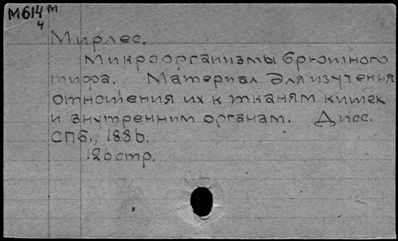 М614 м
4
Мирлес.
Микроорганизмы брюшного
тифа. Материал для изучения
отношения их к тканям кишек
и внутренним органам. Дисс.
СПб., 1886.
126 стр.